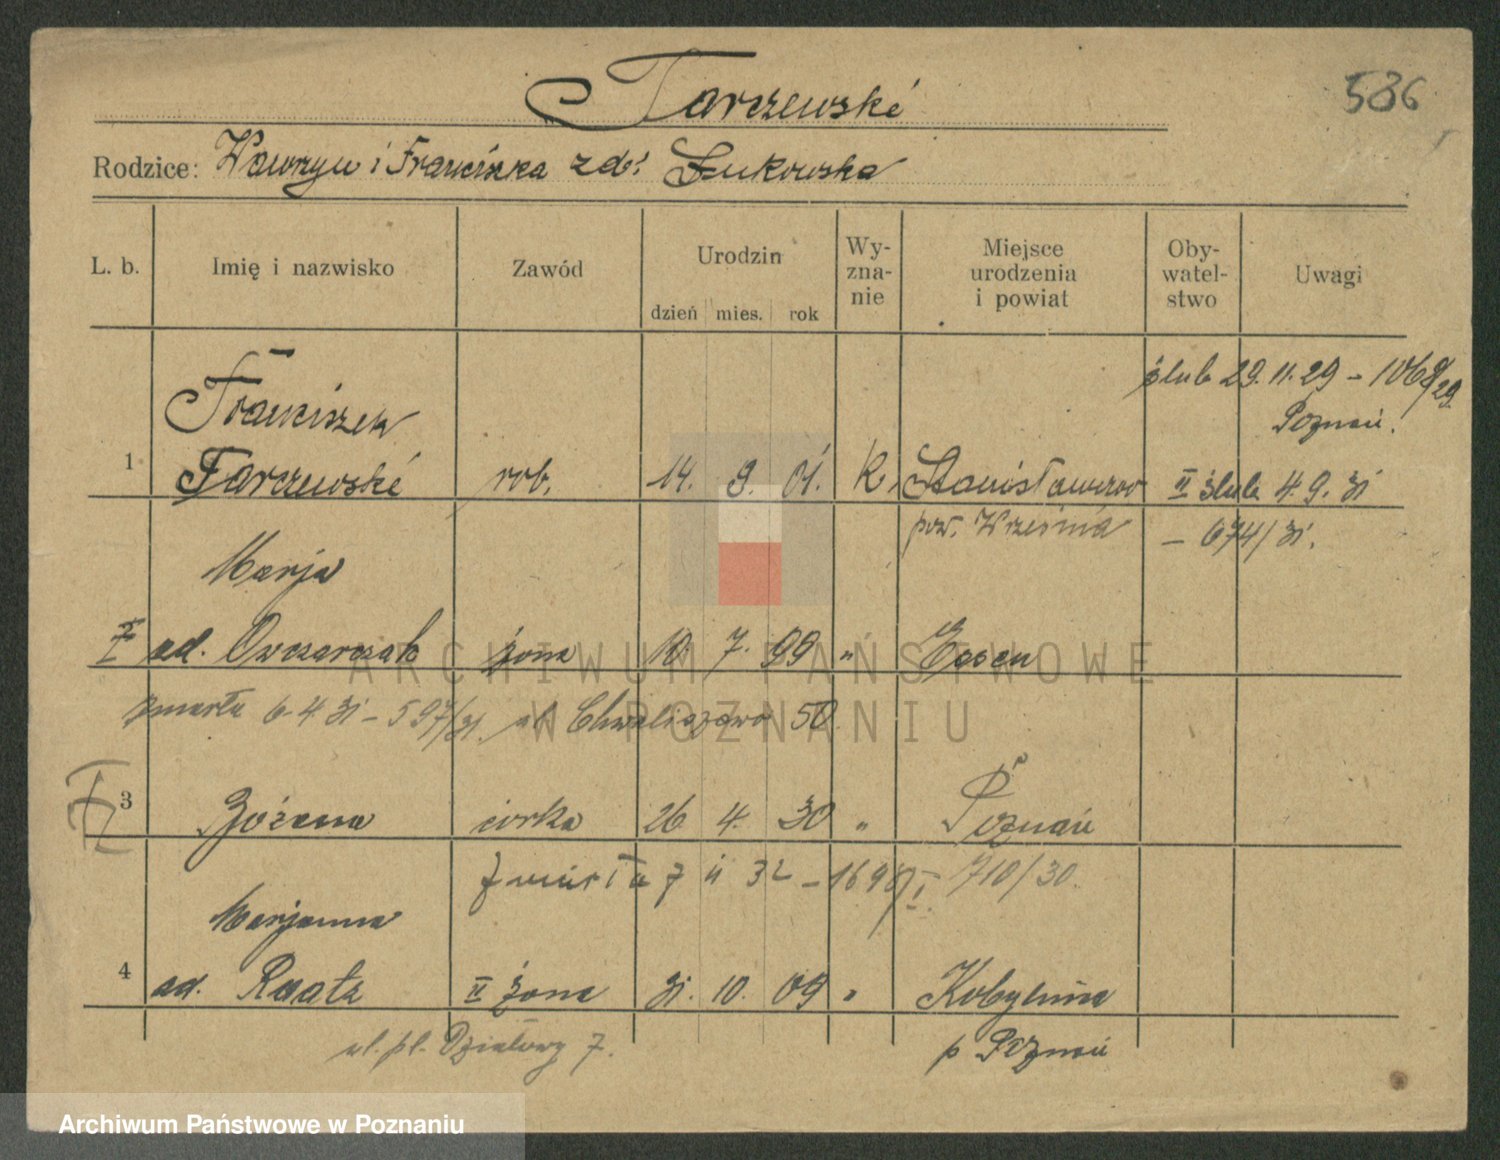 Tarczewski
586
Rodzice: Wawrzyn i Franciszka zd: Łukowska
L. b.
Imię i nazwisko
Zawód
Urodzin
dzień mies. rok
Wy-
zna-
nie
Miejsce
urodzenia
i powiat
Oby-
watel-
stwo
Uwagi
ślub 29.11.29 – 1068/29
Poznań.
Franciszek
1 Tarczewski rob. 14. 9. 01. R. Stanisławowo II ślub 4.9.31
pow. Września – 674/31.
Marja
I zd. Owczarczak żona 10. 7. 99 „ Essen
zmarła 6.4.31 – 597/31. ul. Chwaliszewo 50
3 Bożena córka 26 4. 30 „ Poznań
zmarła 7 11 32 – 1698/I. 710/30.
Marjanna
4 zd. Raatz II żona 31. 10. 09 „ Kobylnica
ul. pl. Działowy 7. p Poznań
ARCHIWUM PAŃSTWOWE
W POZNANIU
Archiwum Państwowe w Poznaniu